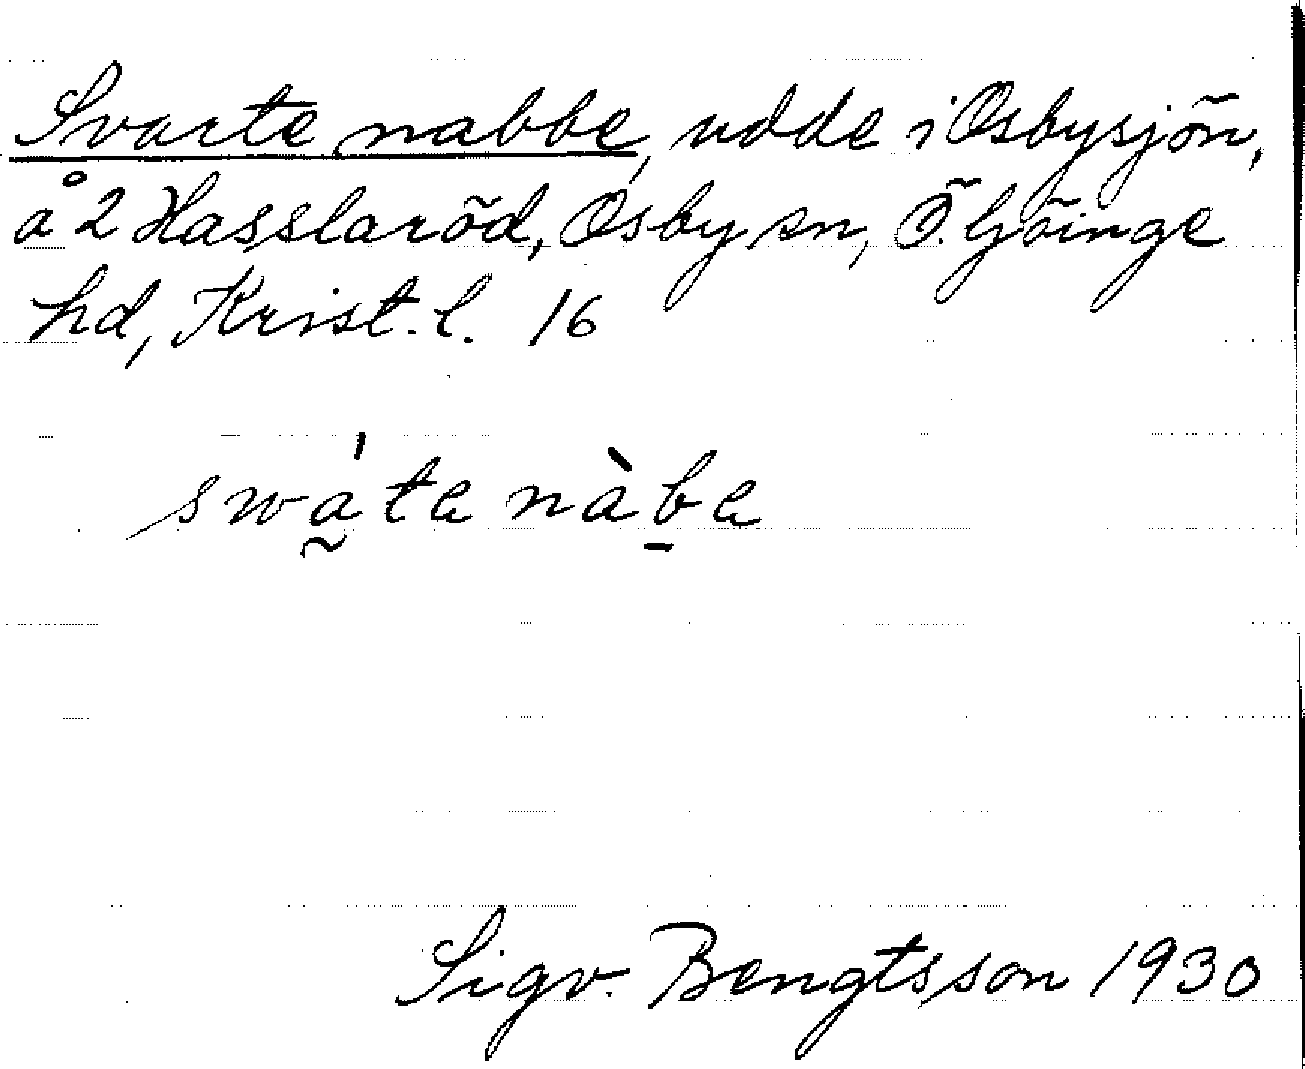 Svarte nabbe, udde i Osbysjön,
å 2 Hasslaröd, Osby sn, Ö. Göinge
hd, Krist. l. 16
swáta nàba
Sigv. Bengtsson 1930